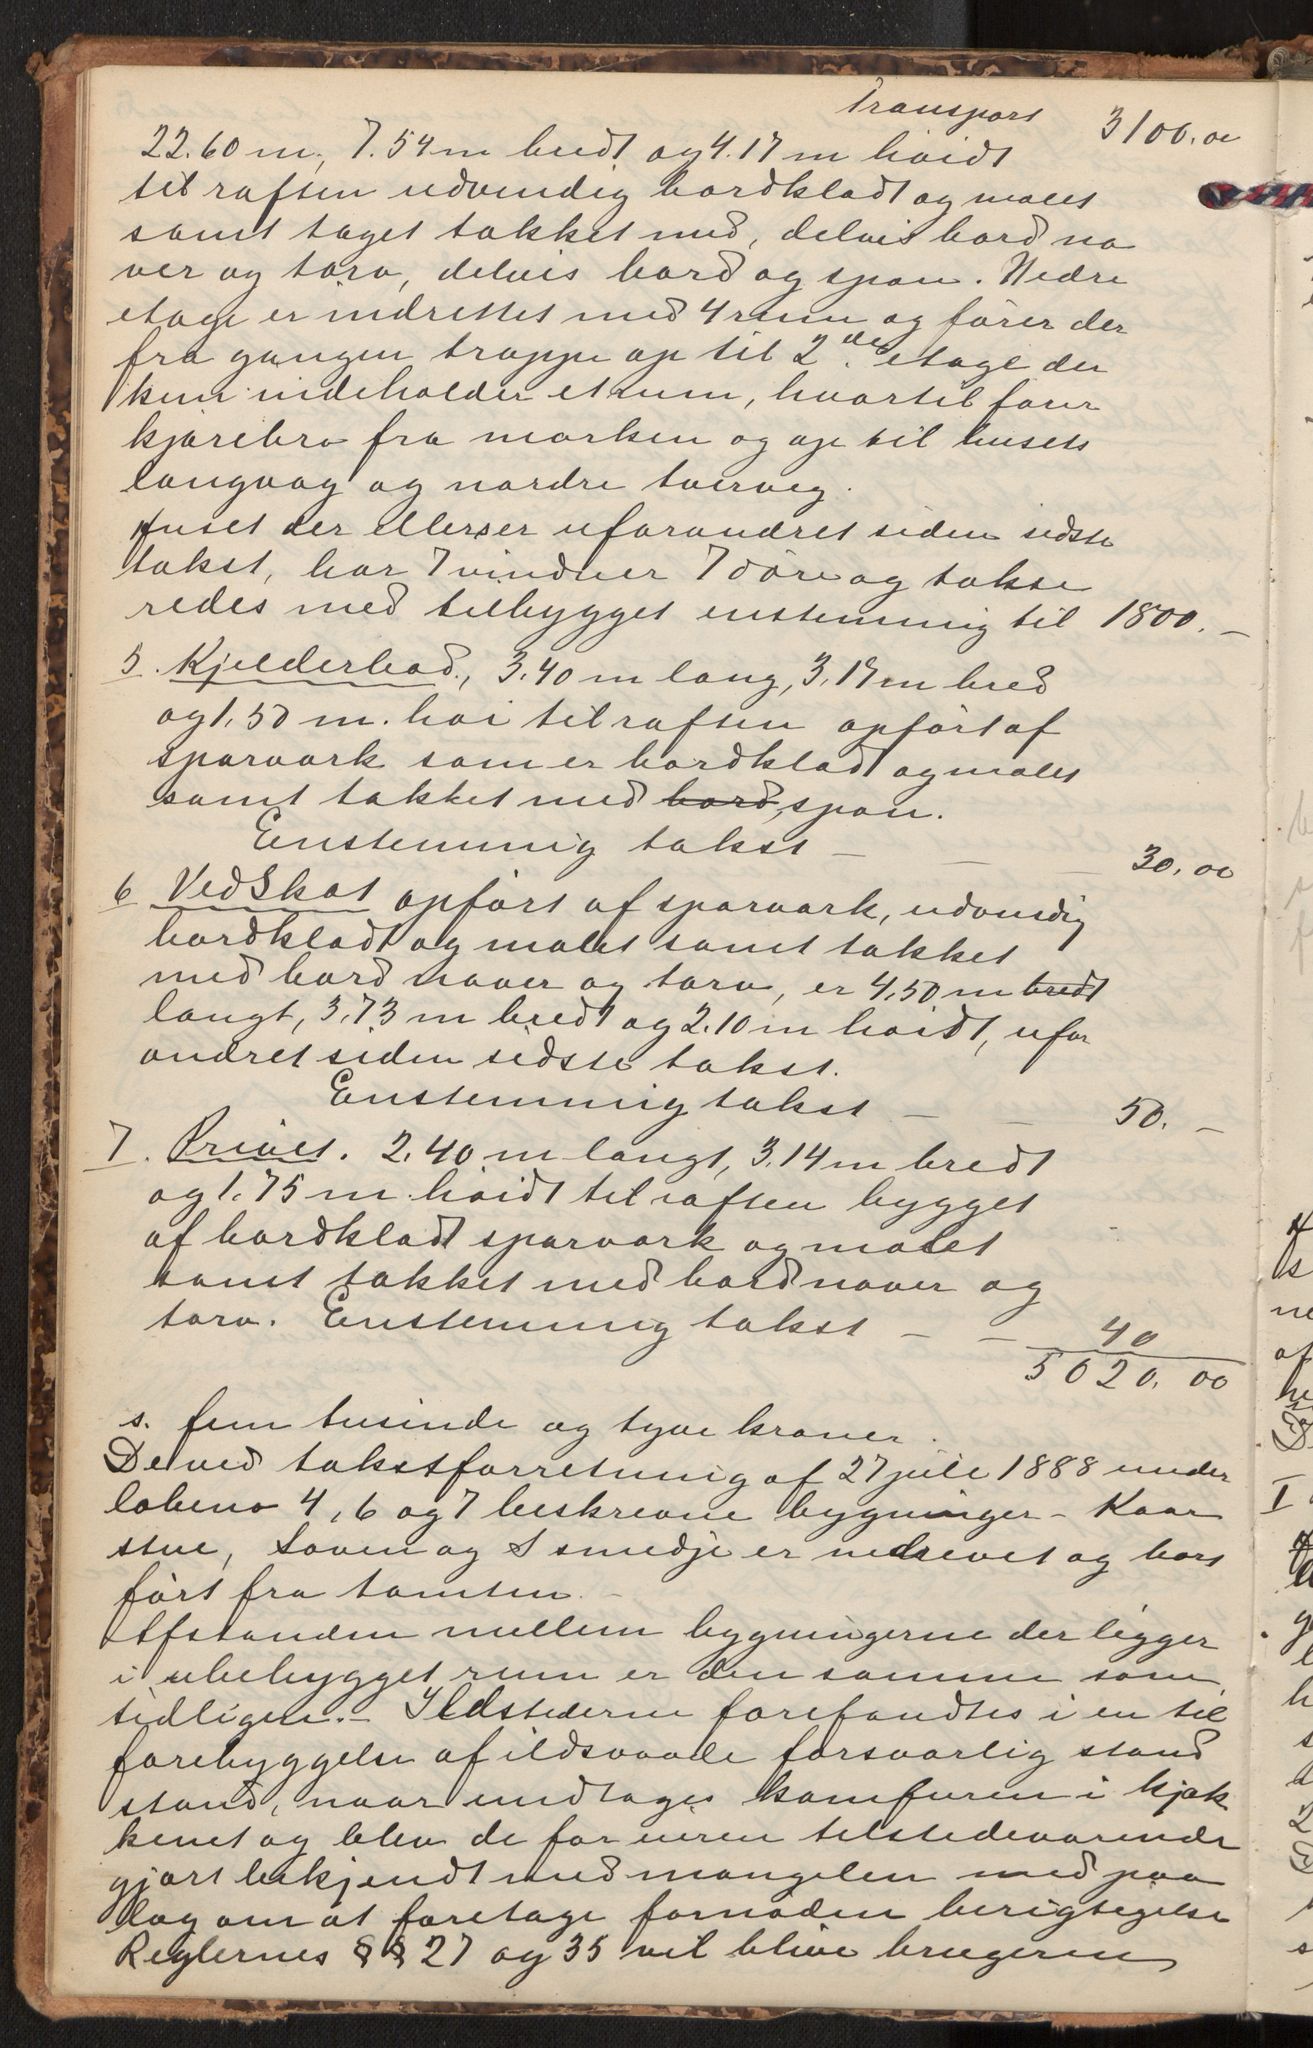 Transport 3100.00
22.60 m, 7.54 m bredt og 4.17 m høidt
til raften udvendig bordklædt og malet
samt taget tækket med, delvis bord næ
ver og törv, delvis bord og spon. Nedre
etage er indrettet med 4 rum og fører der
fra gangen trappe op til 2den etage der
kun indeholder et rum, hvortil fører
kjørebro fra marken og op til husets
langvæg og nordre tvervæg.
Huset der ellers er uforandret siden sidste
takst, har 7 vinduer 7 döre og takse
redes med tilbygget enstemmig til 1800. —
5. Kjelderbod, 3.40 m lang, 3.17 m bred
og 1.50 m. høi til raften opført af
sparværk som er bordklædt og malet
samt tækket med bord, spon.
Enstemmig takst — — — 30.00
6 Vedskot opført af sparværk, udvendig
bordklædt og malet samt tækket
med bord næver og törv, er 4.50 m bredt
langt, 3.73 m bredt og 2.10 m høidt, ufor
andret siden sidste takst.
Enstemmig takst — — 50. —
7. Privet. 2.40 m langt, 3.14 m bredt
og 1.75 m høidt til raften bygget
af bordklædt sparværk og malet
samt tækket med bord næver og
törv. Enstemmig takst — — 40
5020.00
s. fem tusinde og tyve kroner.
De ved takstforretning af 27 juli 1888 under
löbeno 4, 6 og 7 beskrevne bygninger – Kaar
stue, Soven og Smedje er nedrevet og bort
ført fra tomten. –
Afstanden mellem bygningerne der ligger
i ubebygget rum er den samme som
tidligere. – Ildstederne forefandtes i en til
forebyggelse af ildsvaade forsvarlig stand
stand, naar undtages komfuren i kjøk
kenet og blev de for eieren tilstedeværende
gjort bekjendt med mangelen med paa
læg om at foretage fornøden berigtigelse
Reglernes § § 27 og 35 vil blive brugerne